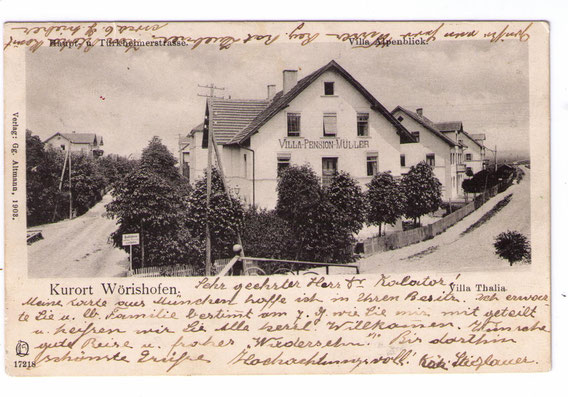 Haupt- u. Türkheimerstrasse.
Villa Alpenblick.
VILLA-PENSION-MÜLLER
Verlag: Gg. Altmann, 1902.
Kurort Wörishofen.
Villa Thalia
Sehr geehrter Herr Dr.
Meine Karte aus München hoffe ich in Ihren Besitz. Ich erwar
te Sie u. lb. Familie bestimt am 7. J wie Sie mir mit geteilt
u. heißen wir Sie Alle herzl. Willkomen. Wünsche
gute Reise u. frohes Wiedersehn! Bis dorthin
schönste Grüße Hochachtungsvoll!
17218